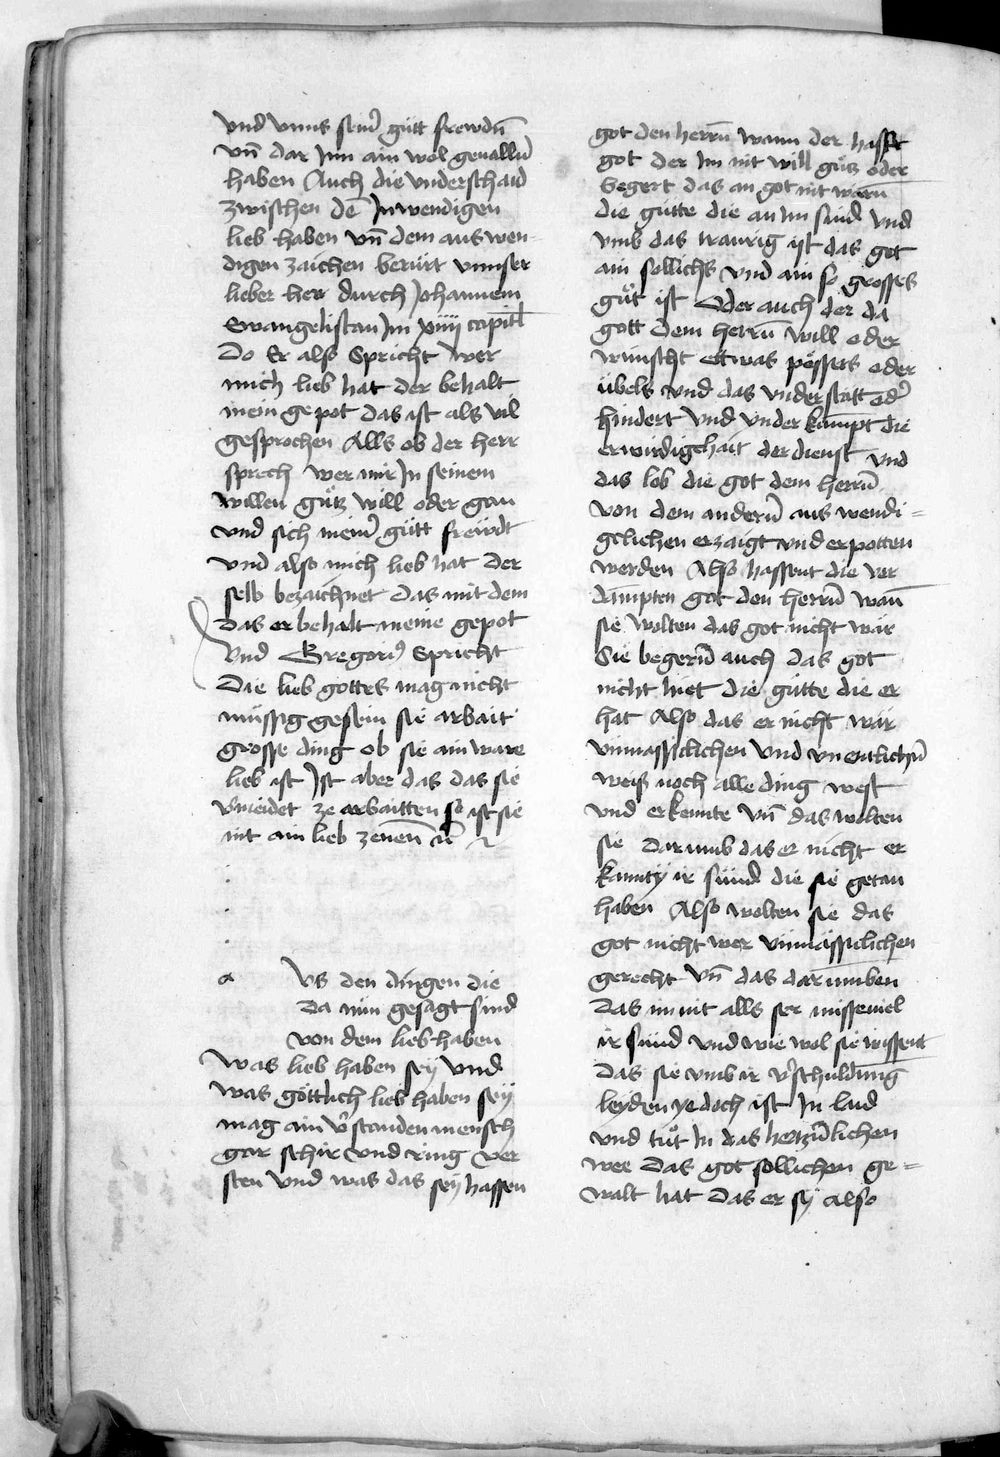 vnd vnns seinr̄ gütt frewdn̄
vn̄ dar Inn ain wol geuallnn̄
haben Auch die vnderschaid
zwischen dē Inwendigen
lieb haben vn̄ dem aus wen-
digen zaichen berürt vnnser
lieber herr durch Johannem
Ewangelistan Im xiiij capitl̄
Do Er also Spricht wer
mich lieb hat der behalt
mein gepot das ist als vil
gesprochen Alls ob der herr
sprech wer mir In seinem
willen gůtz will oder gan
vnd sich meinr̄ gütt frewdt
vnd also mich lieb hat der
selb bezaichnet das mit dem
Das er behalt meine gepot
Vnd Gregoriꝰ Spricht
Die lieb gottes mag nicht
müssig gesein sie arbait
grosse ding ob sie ain ware
lieb ist Ist aber das das sie
vmeidet ze arbaitten so ist sie
nit ain lieb zenenn̄ ꝛc̄
a Vs den dingen die
Da nun gesagt sind
von dem lieb haben
was lieb haben sey vnd
was göttlich lieb haben seÿ
mag ain vr̄standen mensch
gar schir vnd ring ver
sten vnd was das seÿ hassen
got den herrn̄ wann der hasst
got der Im nit will gůtz oder
begert das an got nit wern̄
die gütte die an Im sind vnd
vmb das traurig ist das got
ain sollichs vnd ain so grosses
gůt ist Oder auch der da
gott dem herrn̄ will oder
wünscht ettwas pösses oder
übels vnd das vnderstatt odr̄
hindert vnd vnder kampt die
erwirdigehait der dienst vnd
das lob die got dem herrn̄
von dem andern̄ aus wendi=
gelichen erzaigt vnd erpotten
werden Also hassent die ver
dampten got den herrn̄ wan̄
sie wolten das got nicht wär
Sie begern̄ auch das got
nicht hiet die gütte die er
hat Also das er nicht wär
vnmässicklichen vnd vnentlichn̄
weiß noch alle ding west
vnd erkennte vn̄ das wolten
sie darumb das er nicht er
kannty ir sünd die sie getan
haben Also wolten sie das
got nicht wer vnmässiclichen
gerecht vn̄ das darumben
Das im nit alls ser missviel
ir sünd vnd wie wol sie wissent
das sie vmb ir vr̄schuldung
leyden ye doch ist In laid
vnd tůt In das hertzn̄lichen
wee das got sollichen ge=
walt hat das er sÿ also